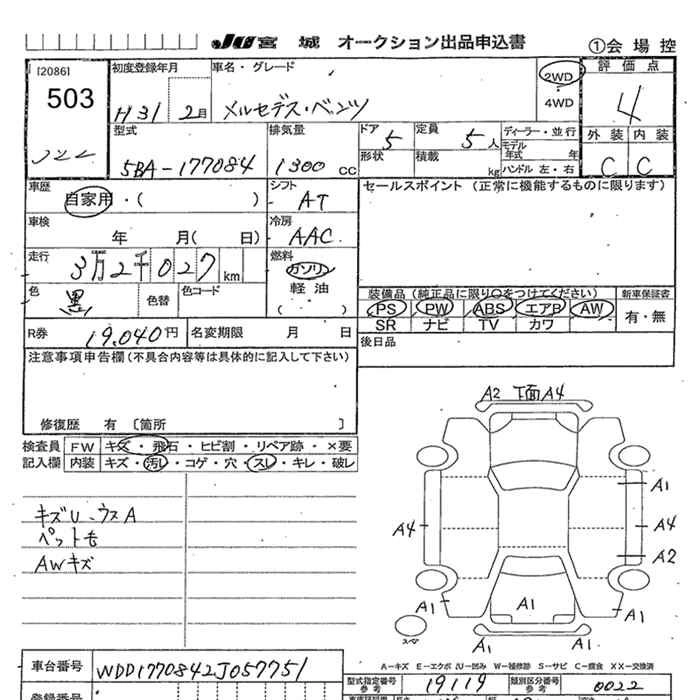 JU 宮城 オークション出品申込書 ①会場控
[2086]
503
初度登録年月 H31 2月
車名・グレード メルセデス・ベンツ
2WD
4WD
評価点 4
外装 内装
C C
型式 5BA-177084
排気量 1300 CC
ドア 5
形状
定員 5人
積載 kg
ディーラー・並行
モデル年式 年
ハンドル 左・右
車歴 自家用・( )
シフト AT
セールスポイント (正常に機能するものに限ります)
車検 年 月( 日)
冷房 AAC
走行 3万2千027km
燃料 ガソリン
軽油
( )
色 黒
色替
色コード
装備品 (純正品に限り○をつけてください)
PS PW ABS エアB AW
SR ナビ TV カワ
新車保証書
有・無
R券 19,040円
名変期限 月 日
後日品
注意事項申告欄 (不具合内容等は具体的に記入して下さい)
修復歴 有 〔箇所 〕
検査員 FW キズ・飛石・ヒビ割・リペア跡・×要
記入欄 内装 キズ・汚レ・コゲ・穴・スレ・キレ・破レ
キズU・ウスA
ペット毛
AWキズ
A2 下面A4
A1
A4 A4
A2
A1 A1 A1
A1 A1
スペア
A-キズ E-エクボ U-凹み W-補修跡 S-サビ C-腐食 XX-交換済
車台番号 WDD1770842J057751
型式指定番号 参考 19119
類別区分番号 参考 0022
登録番号